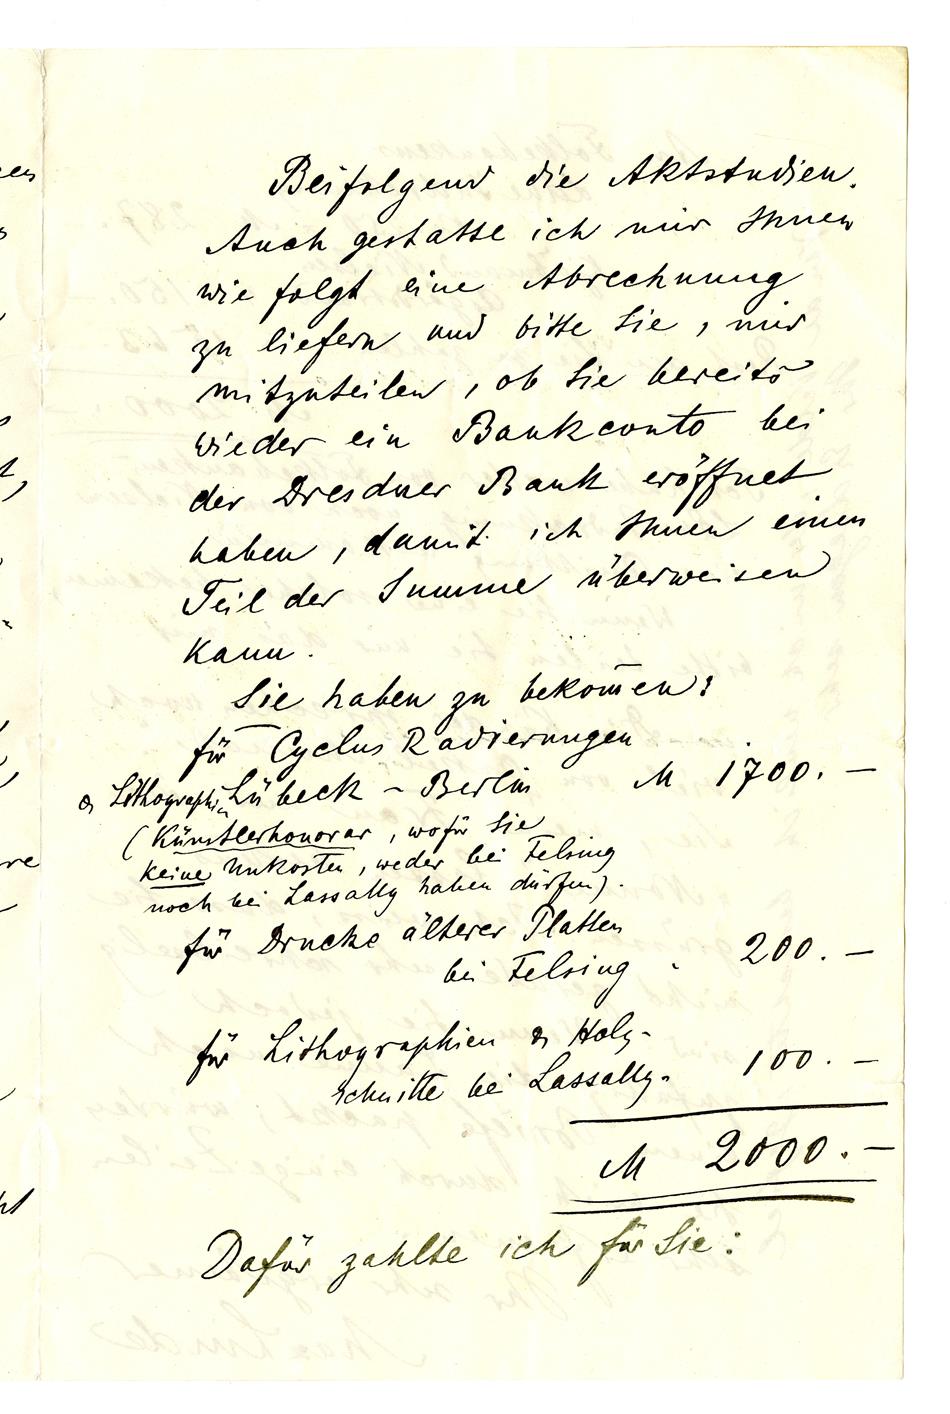 Beifolgend die Aktstudien.
Auch gestatte ich mir Ihnen
wie folgt eine Abrechnung
zu liefern und bitte Sie, mir
mitzuteilen, ob Sie bereits
wieder ein Bankconto bei
der Dresdner Bank eröffnet
haben, damit ich Ihnen einen
Teil der Summe überweisen
kann.
Sie haben zu bekom̅en:
für Cyclus Radierungen
& Lithographien Lübeck - Berlin M 1700. —
(Künstlerhonorar, wofür Sie
keine Unkosten, weder bei Felsing
noch bei Lassally haben dürfen).
für Drucke älterer Platten
bei Felsing . 200. —
für Lithographien & Holz-
schnitte bei Lassally. 100. —
M 2000. —
Dafür zahlte ich für Sie: